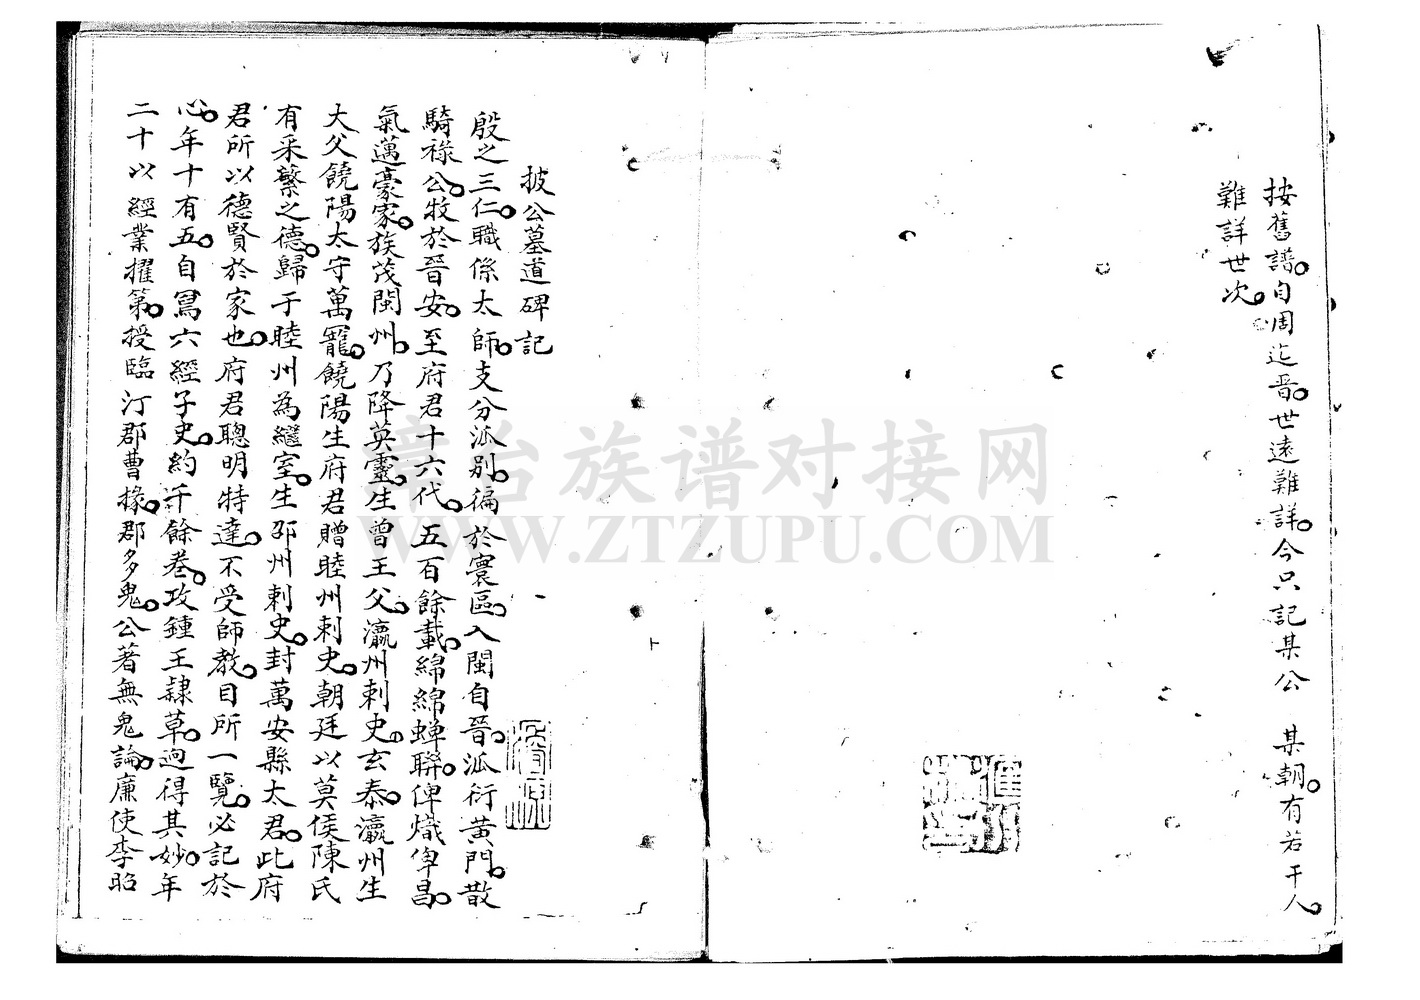 按舊譜自周迄晉世遠難詳今只記某公 某朝有若干人
難詳世次
披公墓道碑記
殷之三仁職係太師支分泒別徧於寰區入閩自晉泒衍黃門散
騎祿公牧於晉安至府君十六代五百餘載綿綿蟬聯俾熾俾昌
氣邁豪家族茂閩州乃降英靈生曾王父瀛州剌史玄泰瀛州生
大父饒陽太守萬寵饒陽生府君贈睦州剌史朝廷以莫侯陳氏
有采蘩之德歸于睦州為繼室生邵州剌史封萬安縣太君此府
君所以德賢於家也府君聰明特達不受師教目所一覽必記於
心年十有五自寫六經子史約千餘卷攻鍾王隸草迥得其妙年
二十以經業擢第授臨汀郡曹掾郡多鬼公著無鬼論廉使李昭
章台族谱对接网
WWW.ZTZUPU.COM